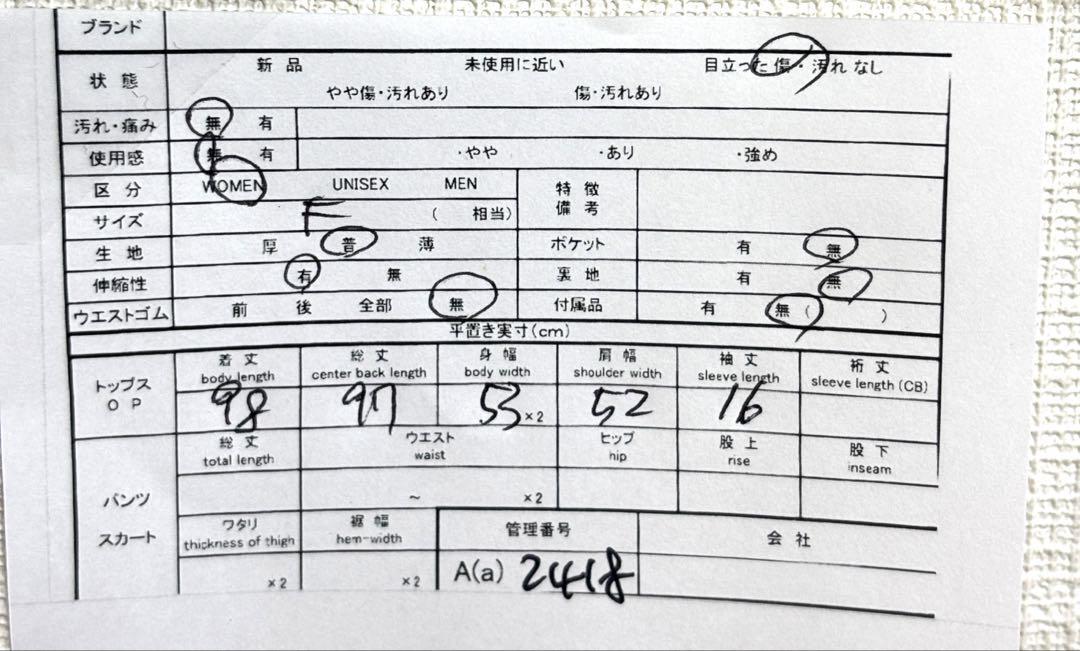 ブランド
状態 新品 未使用に近い 目立った傷・汚れなし
やや傷・汚れあり 傷・汚れあり
汚れ・痛み 無 有
使用感 無 有 ・やや ・あり ・強め
区分 WOMEN UNISEX MEN 特徴備考
サイズ F ( 相当)
生地 厚 普 薄 ポケット 有 無
伸縮性 有 無 裏地 有 無
ウエストゴム 前 後 全部 無 付属品 有 無 ( )
平置き実寸(cm)
トップス OP 着丈 総丈 身幅 肩幅 袖丈 裄丈
body length center back length body width shoulder width sleeve length sleeve length (CB)
98 97 53 ×2 52 16
パンツ スカート 総丈 ウエスト ヒップ 股上 股下
total length waist hip rise inseam
~ ×2
ワタリ 裾幅 管理番号 会社
thickness of thigh hem-width
×2 ×2 A(a) 2418